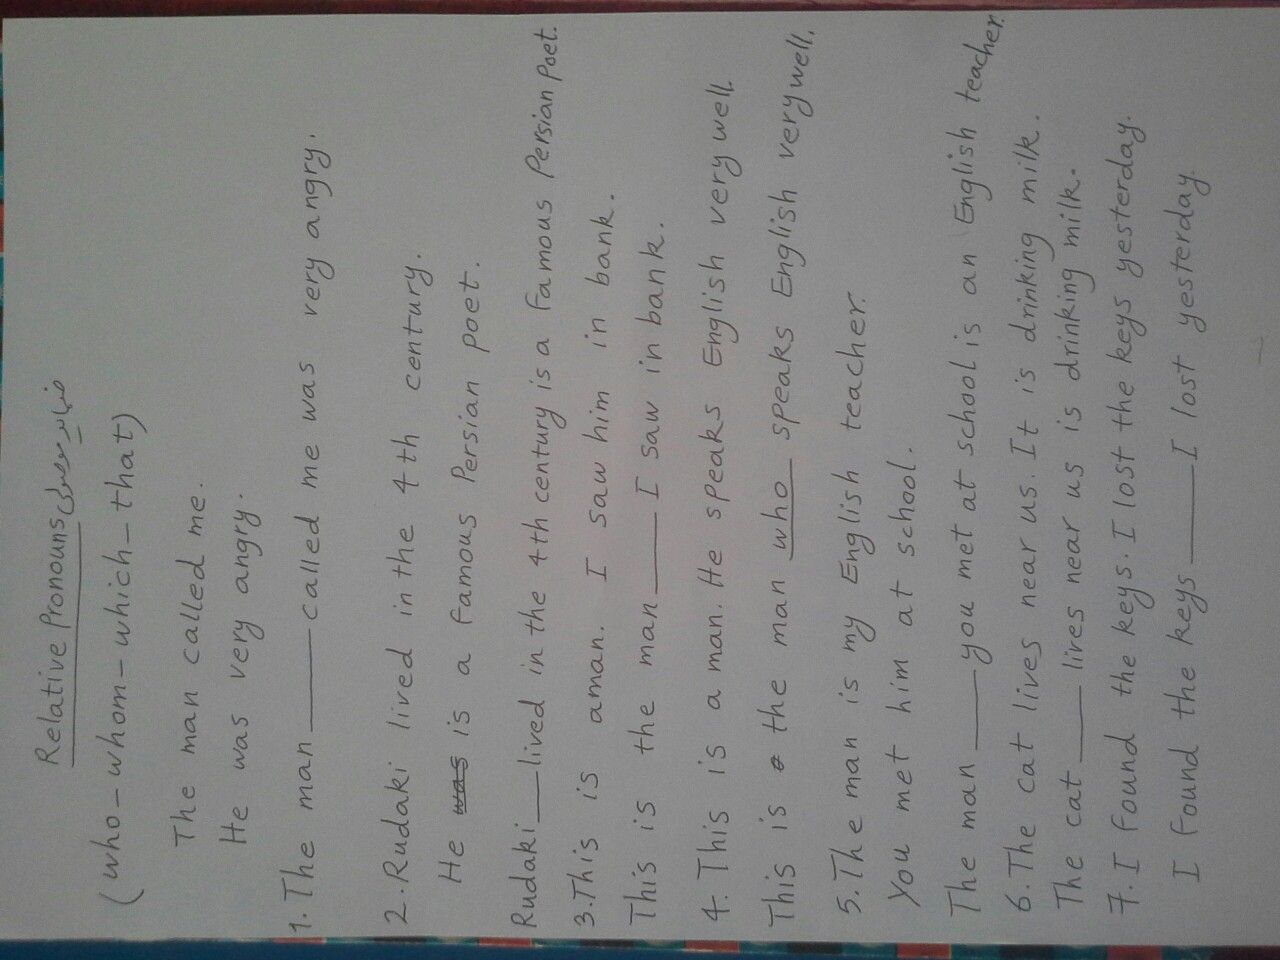 Relative Pronouns ضمایر موصولی
(who_whom_which_that)
The man called me.
He was very angry.
1. The man ____ called me was very angry.
2. Rudaki lived in the 4th century.
He was is a famous Persian poet.
Rudaki ___ lived in the 4th century is a famous Persian poet.
3. This is aman. I saw him in bank.
This is the man ____ I saw in bank.
4. This is a man. He speaks English very well.
This is a the man who speaks English very well.
5. The man is my English teacher.
You met him at school.
The man ____ you met at school is an English teacher.
6. The cat lives near us. It is drinking milk.
The cat ____ lives near us is drinking milk.
7. I found the keys. I lost the keys yesterday.
I found the keys ____ I lost yesterday.